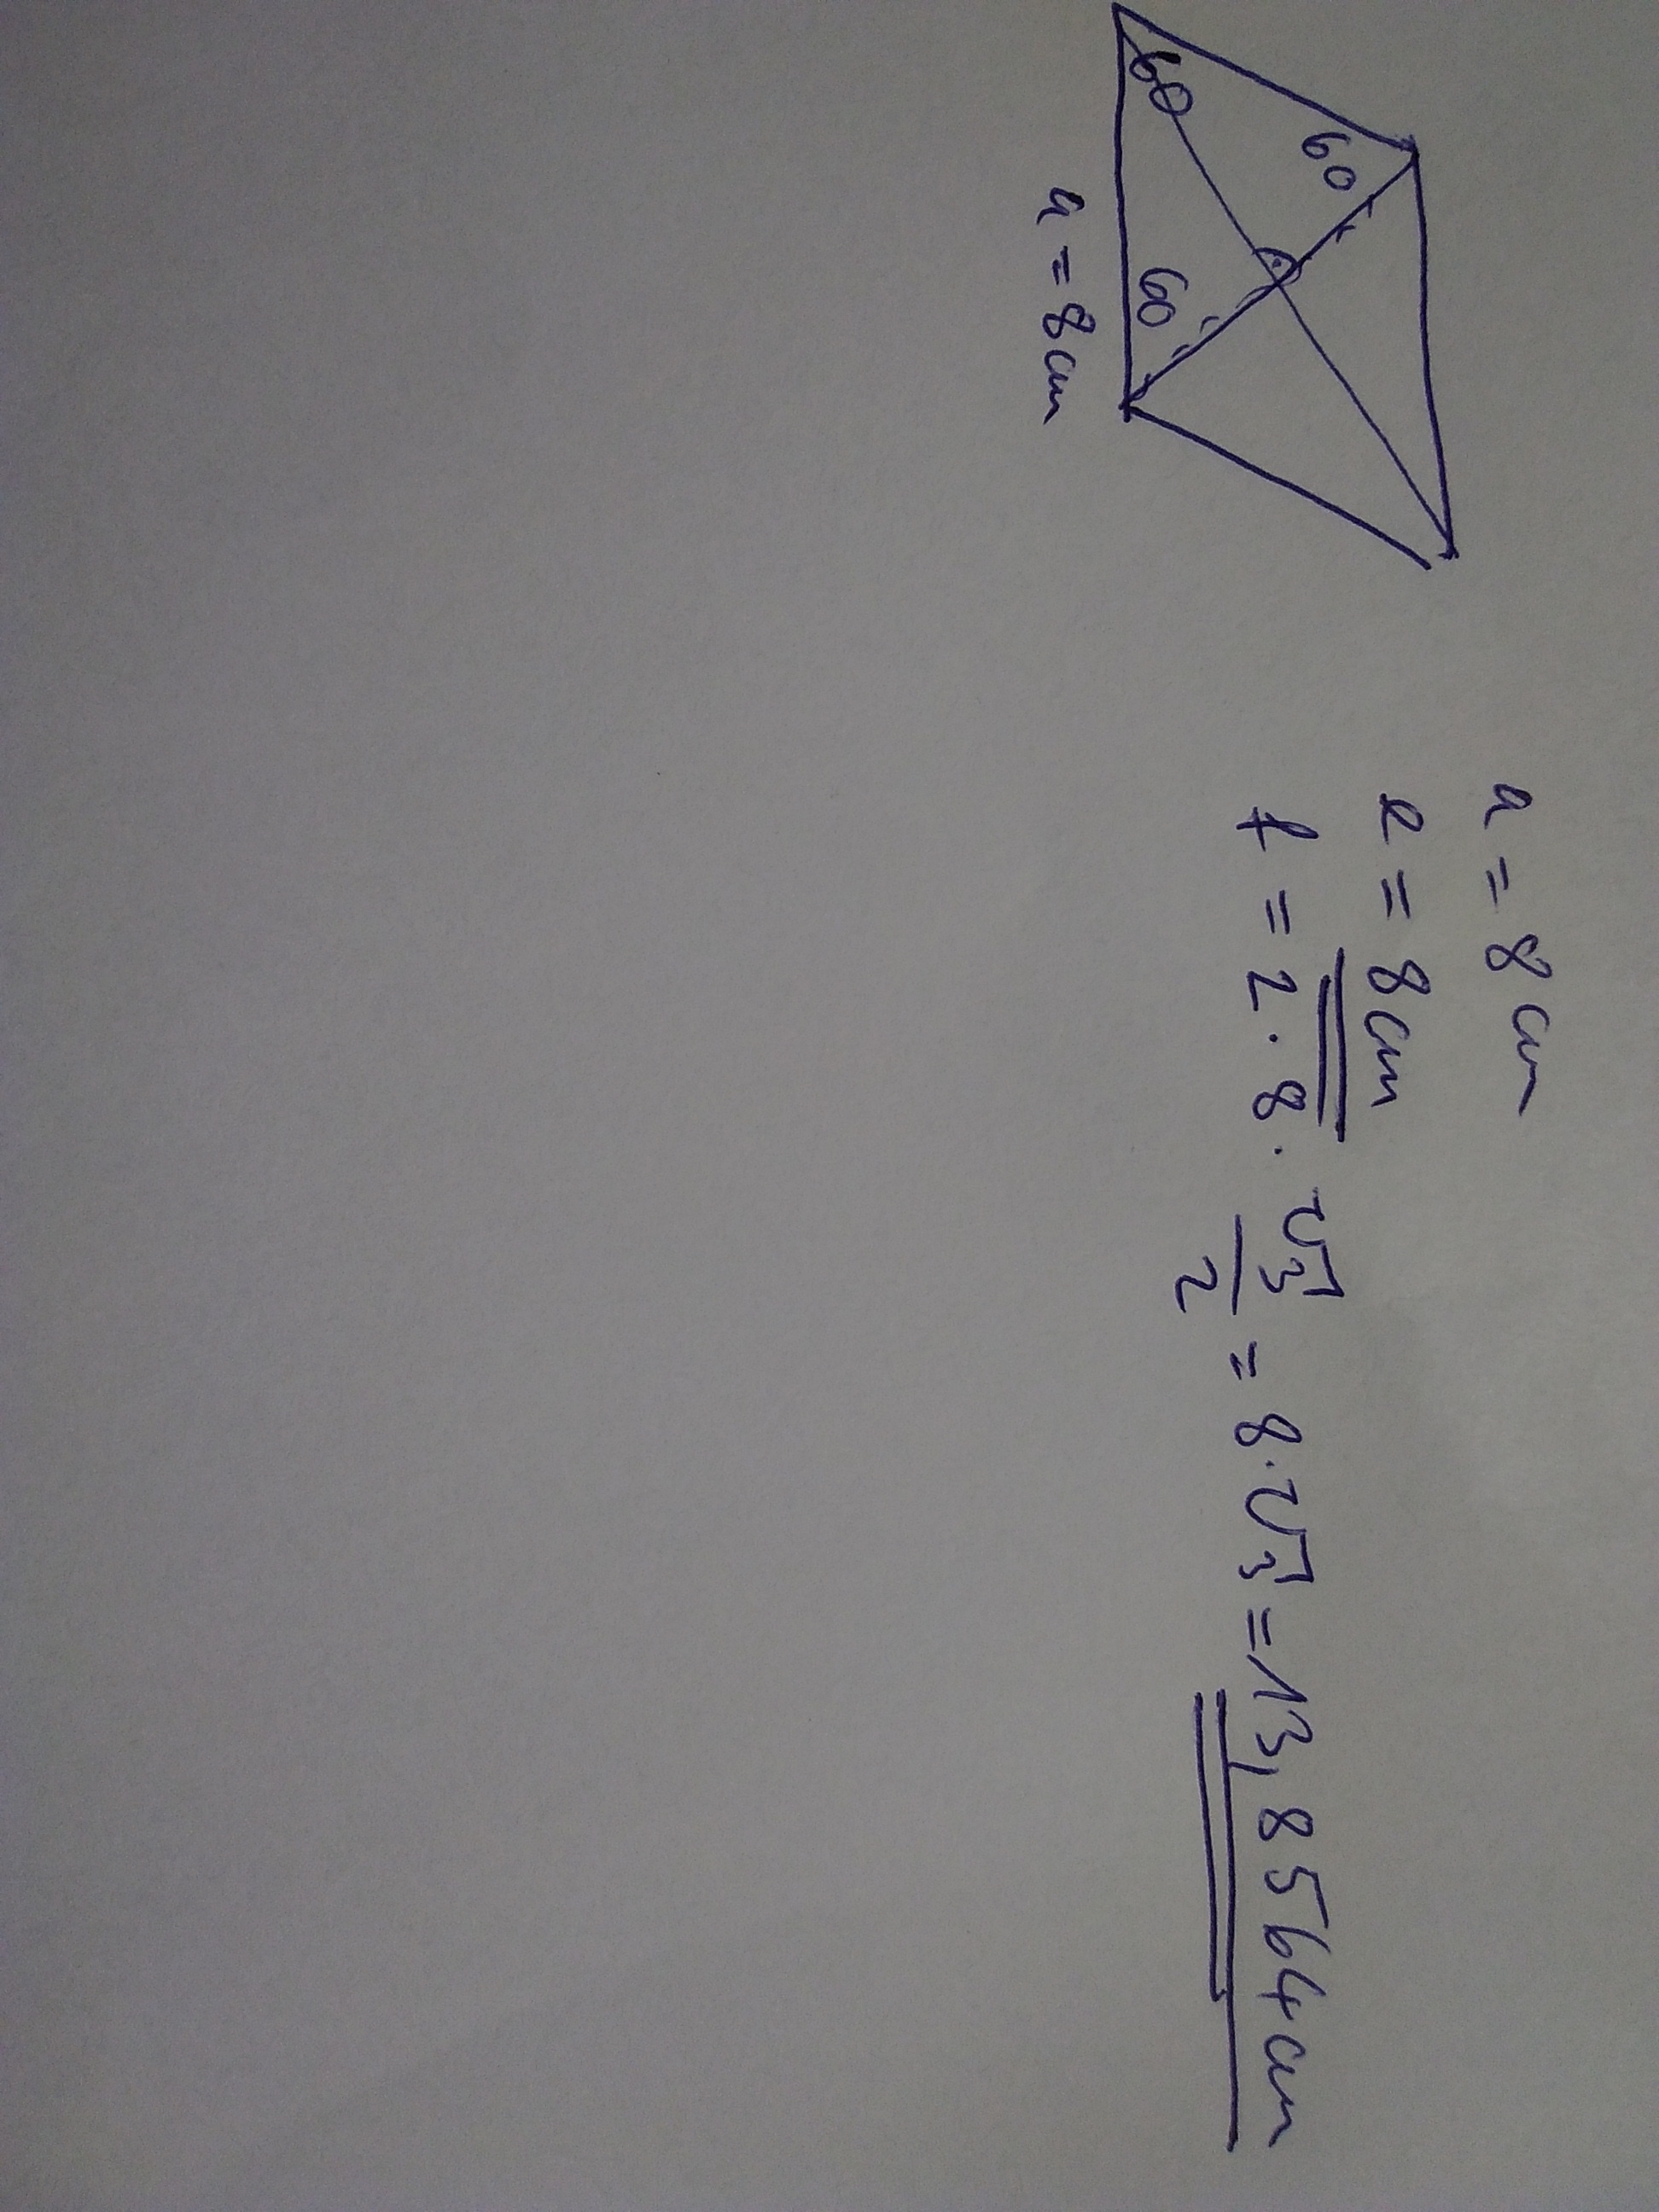 60
60
60
a = 8cm
a = 8cm
e = 8cm
f = 2 · 8 · √3/2 = 8 · √3 = 13,8564cm